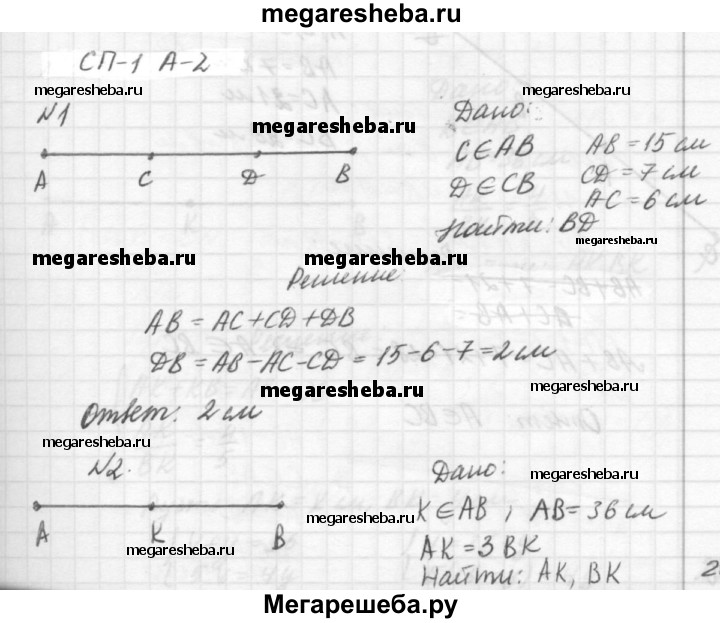 megaresheba.ru
СП-1 А-2
megaresheba.ru
megaresheba.ru
№1
megaresheba.ru
Дано:
A C D B
C∈AB AB = 15 см
D∈CB CD = 7 см
AC = 6 см
megaresheba.ru
Найти: BD
megaresheba.ru megaresheba.ru
Решение:
AB = AC+CD+DB
DB = AB-AC-CD = 15-6-7=2 см
megaresheba.ru
megaresheba.ru
Ответ: 2 см
megaresheba.ru
№2.
Дано:
megaresheba.ru
A K B
K∈AB, AB= 36 см
megaresheba.ru
megaresheba.ru
AK = 3 BK
megaresheba.ru
Найти: AK, BK
2
Мегарешеба.ру